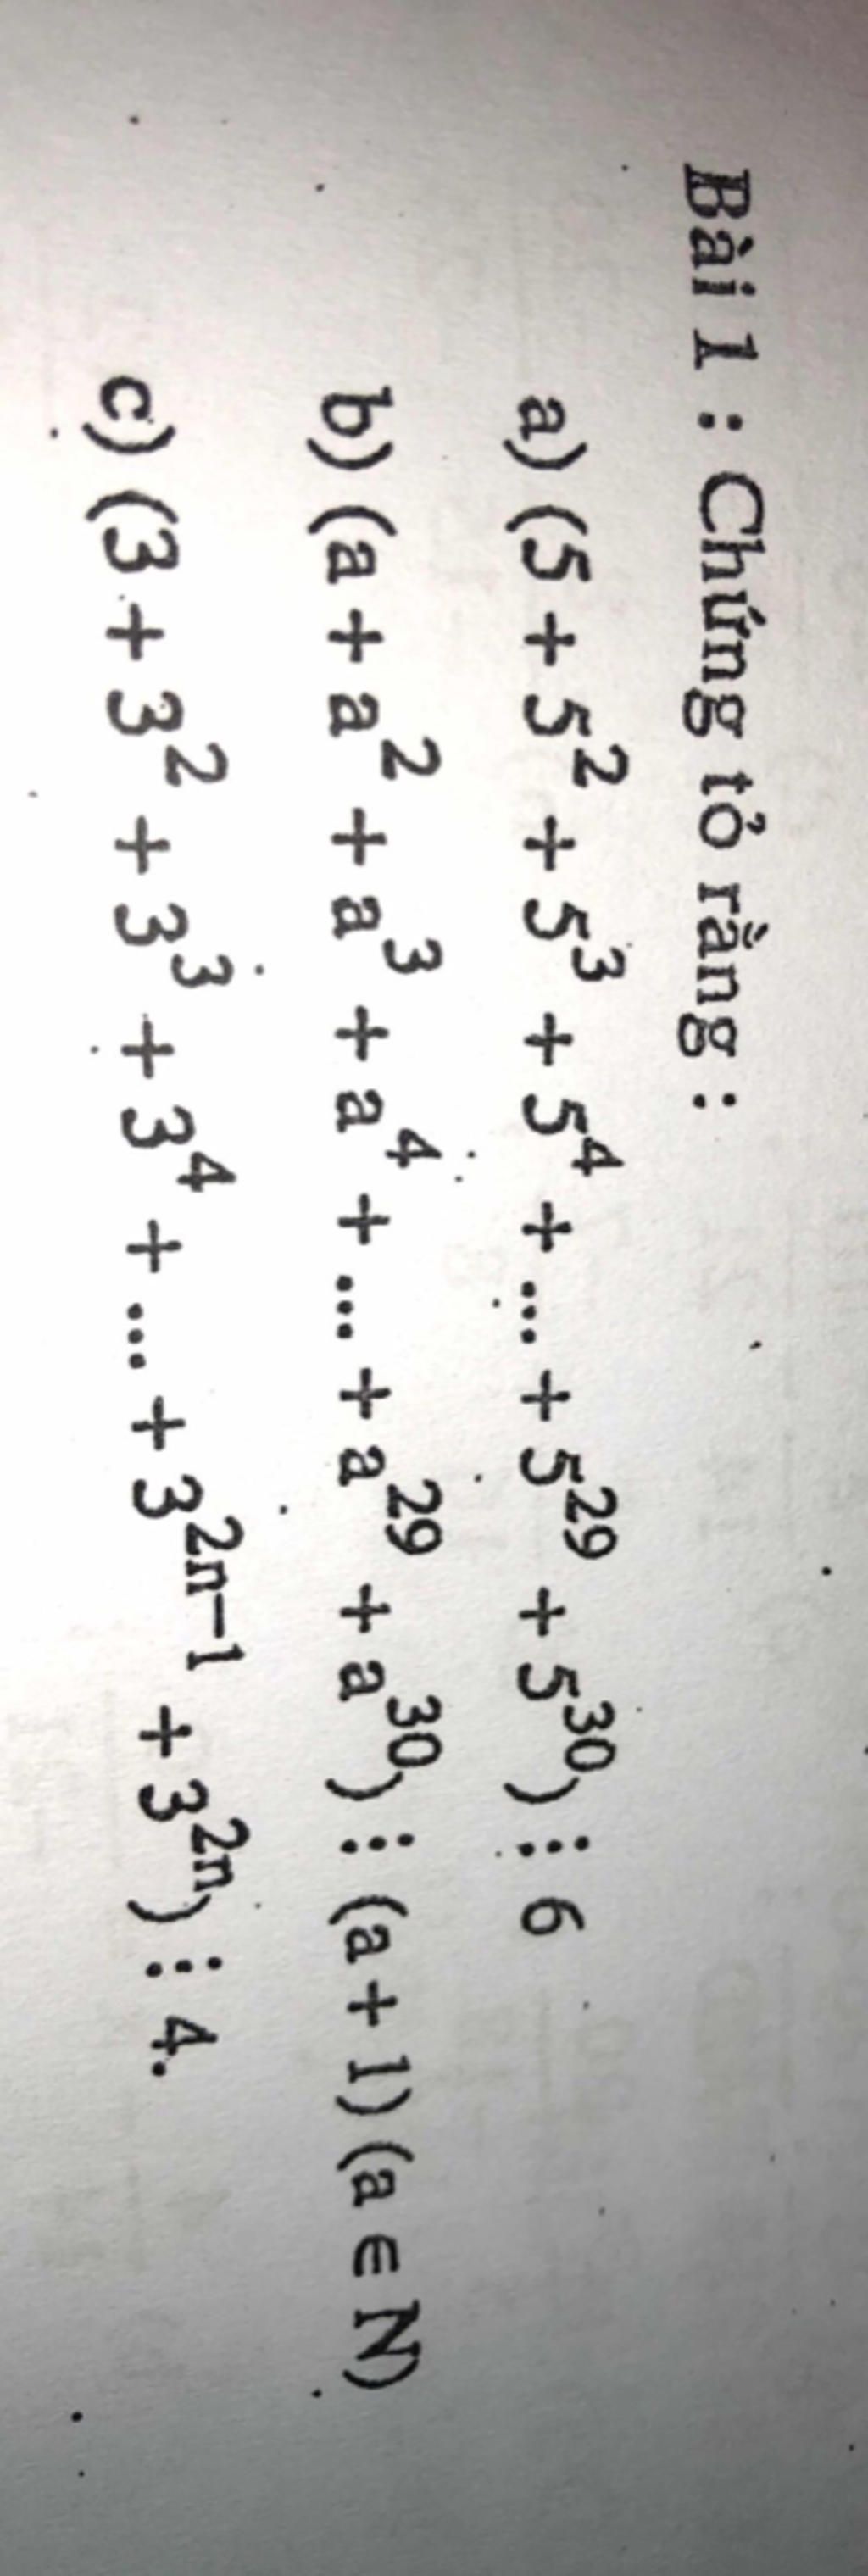 Bài 1 : Chứng tỏ rằng :
a) (5 + 5² + 5³ + 5⁴ + ... + 5²⁹ + 5³⁰) ⋮ 6
b) (a + a² + a³ + a⁴ + ... + a²⁹ + a³⁰) ⋮ (a + 1) (a ∈ N)
c) (3 + 3² + 3³ + 3⁴ + ... + 3²ⁿ⁻¹ + 3²ⁿ) ⋮ 4.